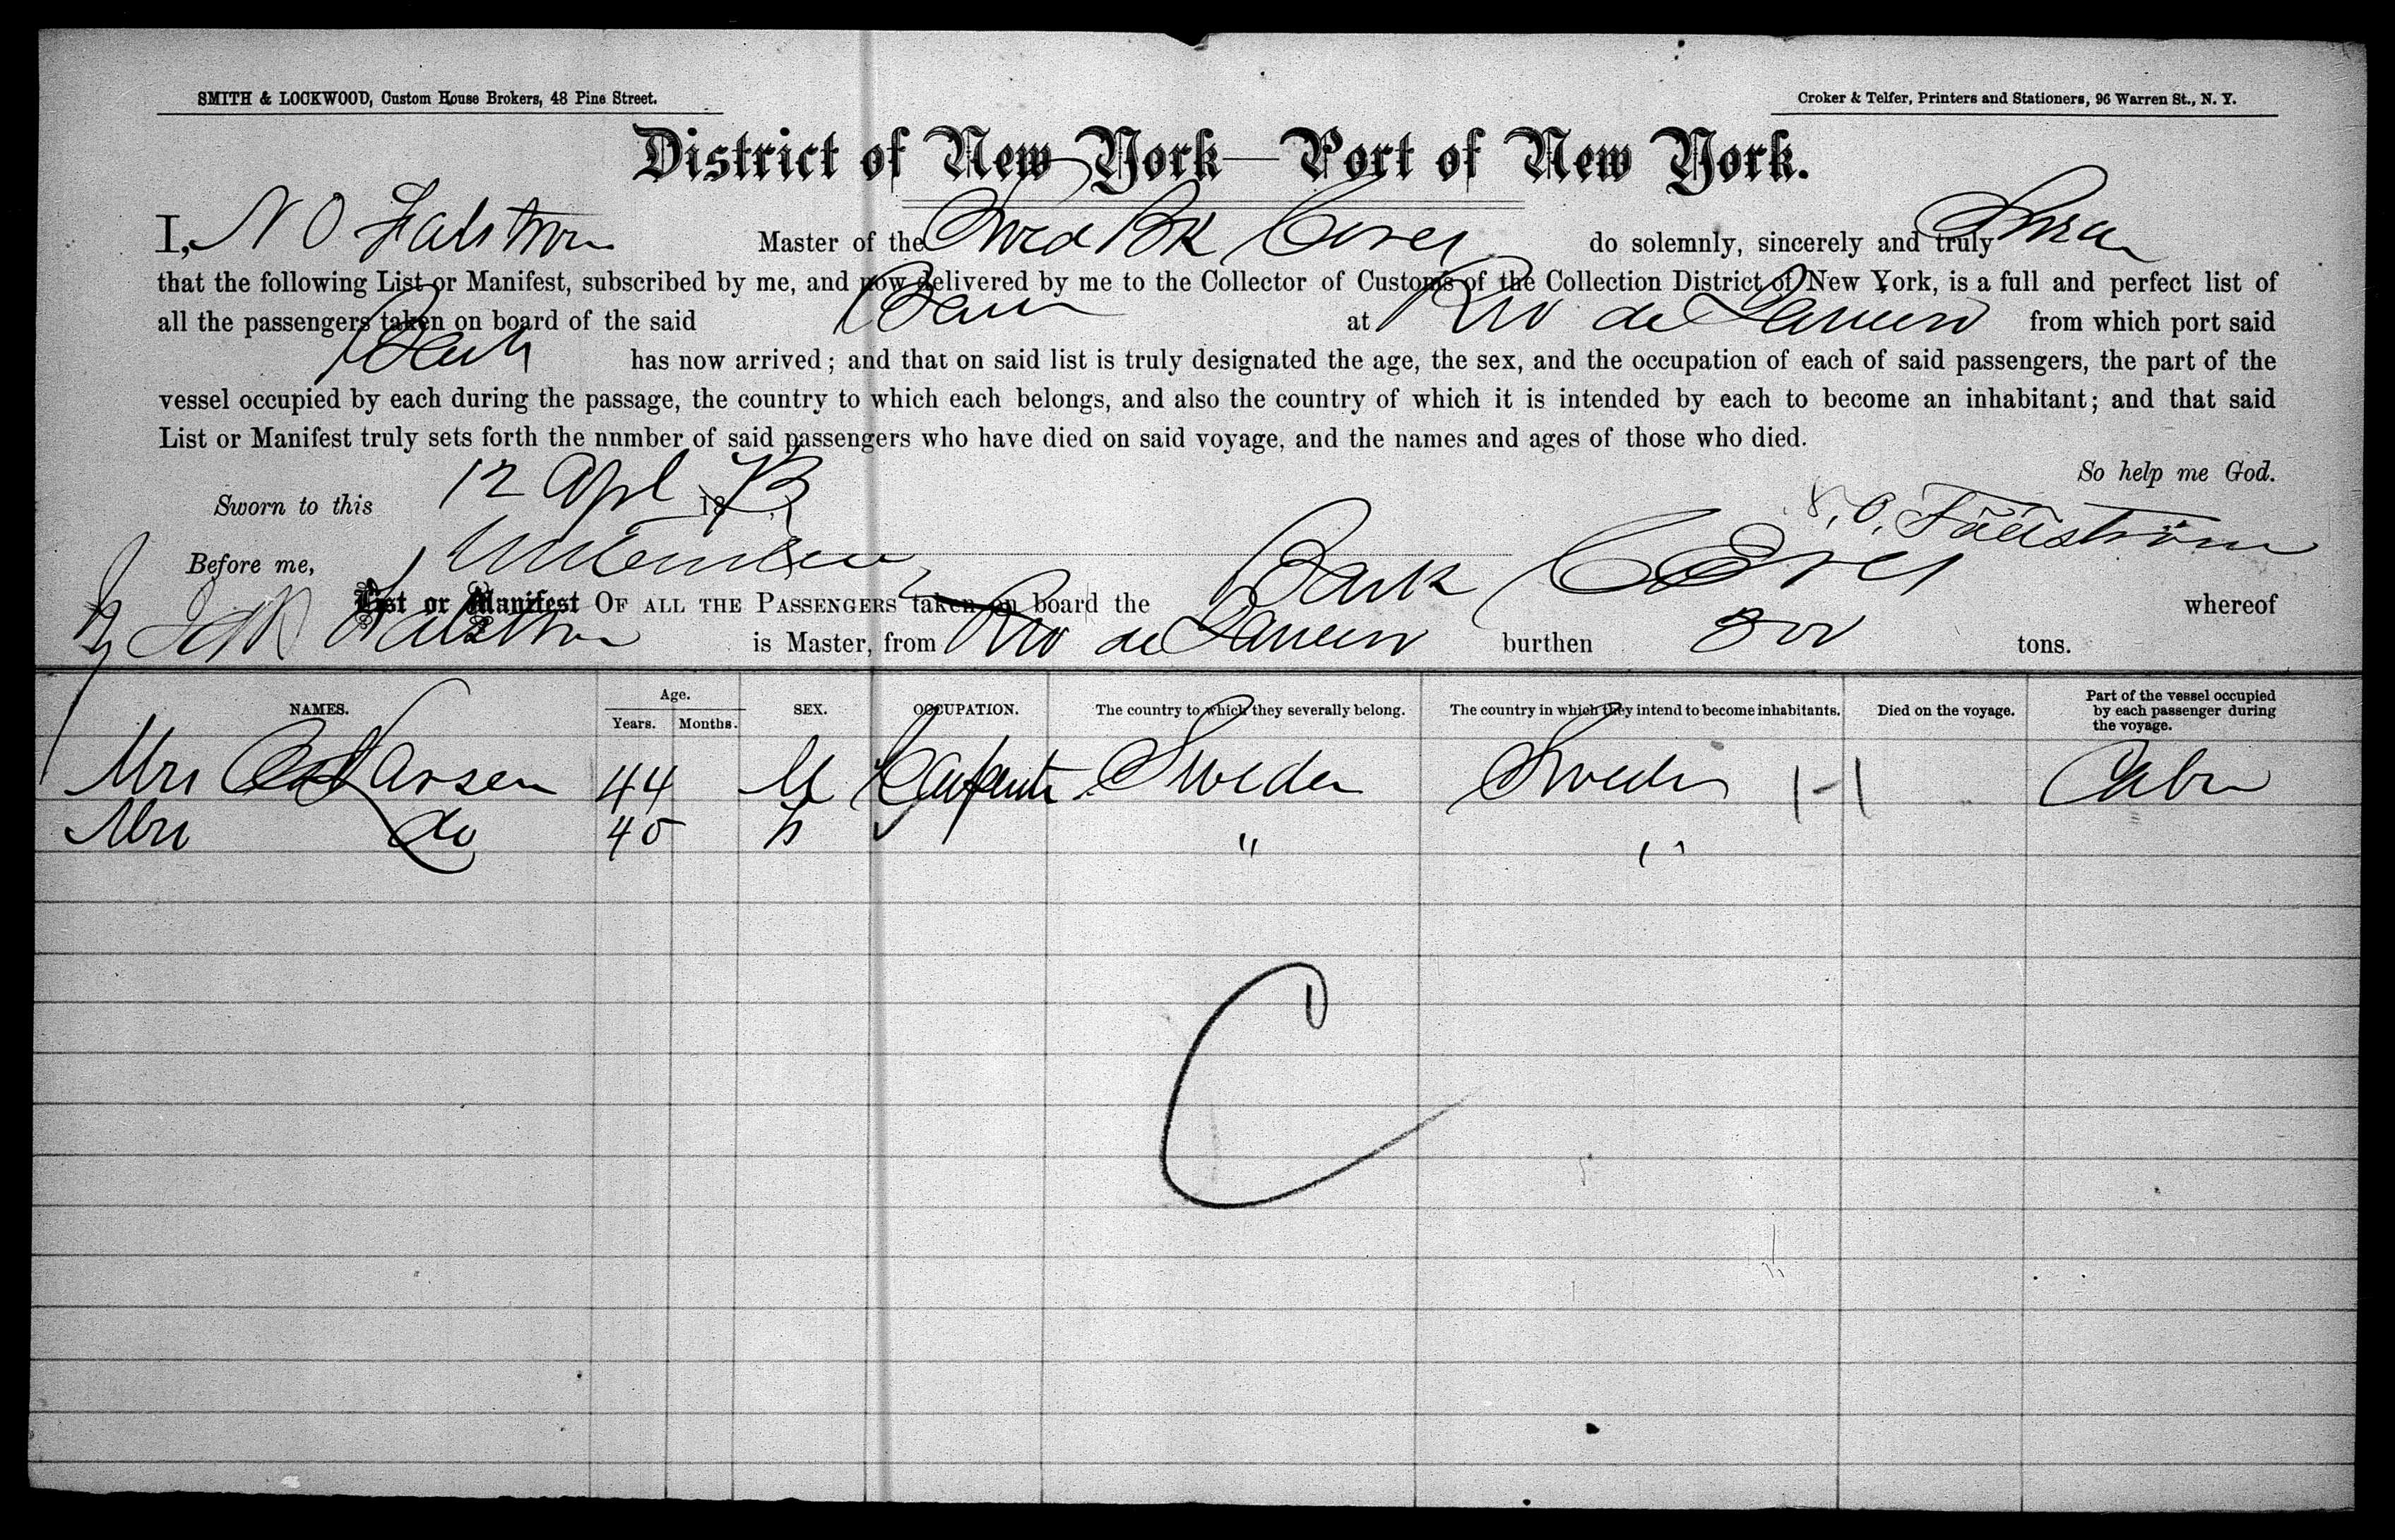 SMITH & LOCKWOOD, Custom House Brokers, 48 Pine Street.
Croker & Telfer, Printers and Stationers, 96 Warren St., N. Y.
District of New York—Port of New York.
I, N O Falstrom Master of the Swed Bk Ceres do solemnly, sincerely and truly Swear
that the following List or Manifest, subscribed by me, and now delivered by me to the Collector of Customs of the Collection District of New York, is a full and perfect list of
all the passengers taken on board of the said Bark at Rio de Janeiro from which port said
Bark has now arrived; and that on said list is truly designated the age, the sex, and the occupation of each of said passengers, the part of the
vessel occupied by each during the passage, the country to which each belongs, and also the country of which it is intended by each to become an inhabitant; and that said
List or Manifest truly sets forth the nnmber of said passengers who have died on said voyage, and the names and ages of those who died.
So help me God.
Sworn to this 12 Apl 18
O. Fählström
Before me,
List or Manifest OF ALL THE PASSENGERS taken on board the Bark Ceres whereof
Falstrom is Master, from Rio de Janeiro burthen 300 tons.
NAMES. Age. Years. Months. SEX. OCCUPATION. The country to which they severally belong. The country in which they intend to become inhabitants. Died on the voyage. Part of the vessel occupied by each passenger during the voyage.
Larsen 44 M Carpenter Sweden Sweden 1-1 Cabin
Mrs do 45 " "
C